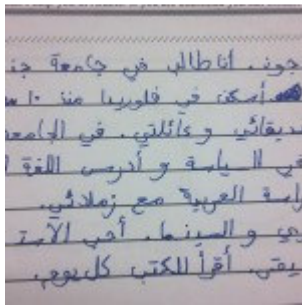 جون. أنا طالب في جامعة
أسكن في فلوريدا منذ ١٠
وعائلتي. في الجامعة
في السياسة و أدرس اللغة
العربية مع زملائي.
و السينما. أحب
أقرأ الكتب كل يوم.